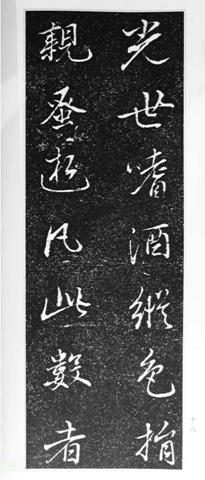 光世嗜酒縱色捐
親蚤逝凡此數者
十六